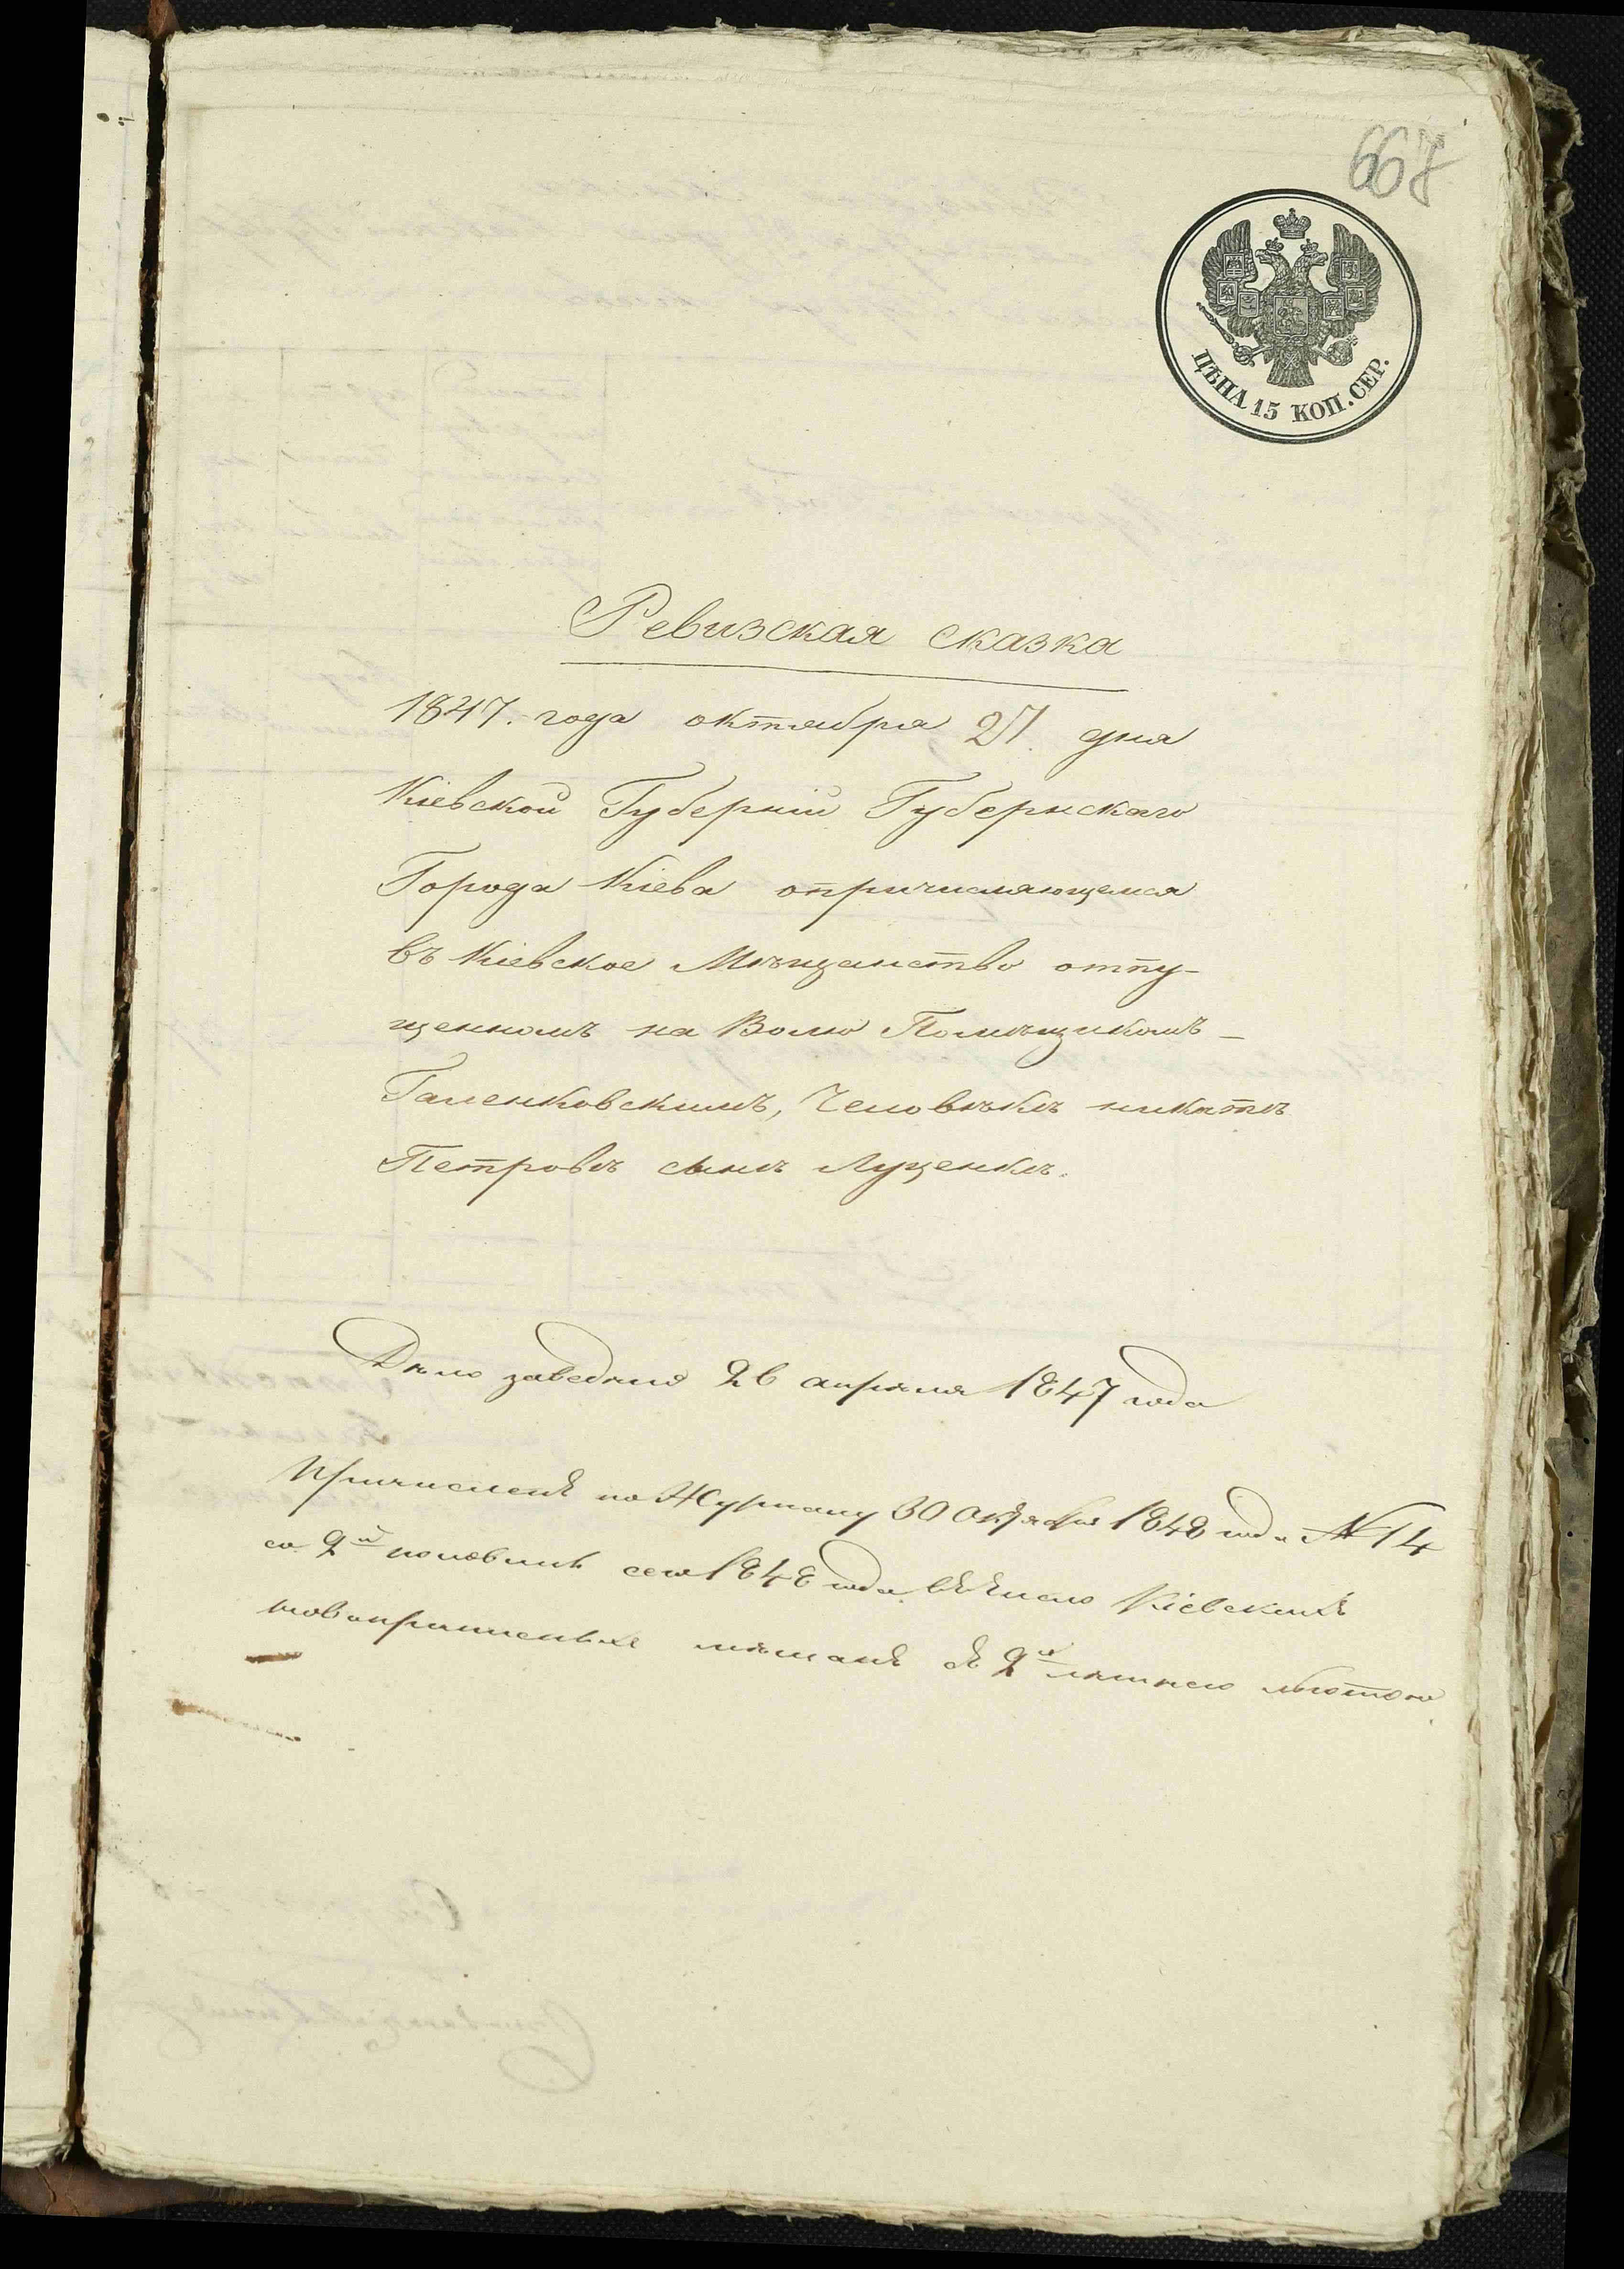 668
ЦѢНА 15 КОП. СЕР.
Ревизская сказка
1847. года октября 27. дня
Кіевской Губерніи Губернскаго
Города Кіева опричисляющемся
въ Кіевское Мѣщанство отпу-
щенномъ на Волю Помѣщикомъ-
Галенковскимъ, Человѣкѣ никитѣ
Петровѣ сынѣ Луценкѣ.
Дѣло заведено 26 апрѣля 1847 года
Причисленъ по Журналу 30 октября 1848 года № 14
со 2й половины сего 1848 года въ число Кіевскихъ
мѣщанъ съ 2х лѣтнею льготою